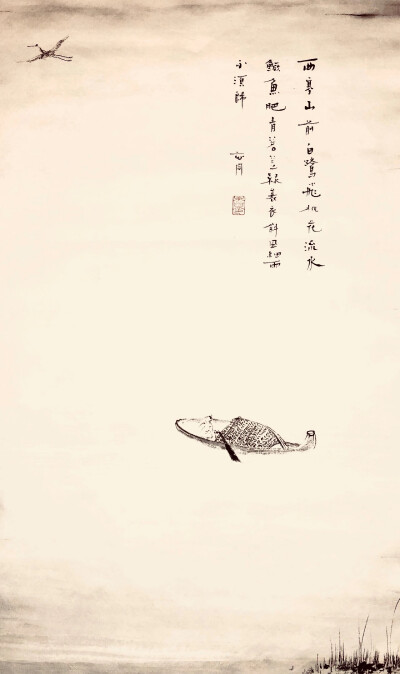 西塞山前白鷺飛桃花流水
鱖魚肥青箬笠綠蓑衣斜風細雨
不須歸